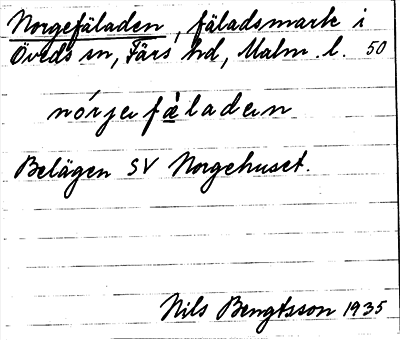 Norgefäladen, fäladsmark i
Öveds sn, Färs hd, Malm. l. 50
nórjefä̀laden
Belägen SV Norgehuset.
Nils Bengtsson 1935